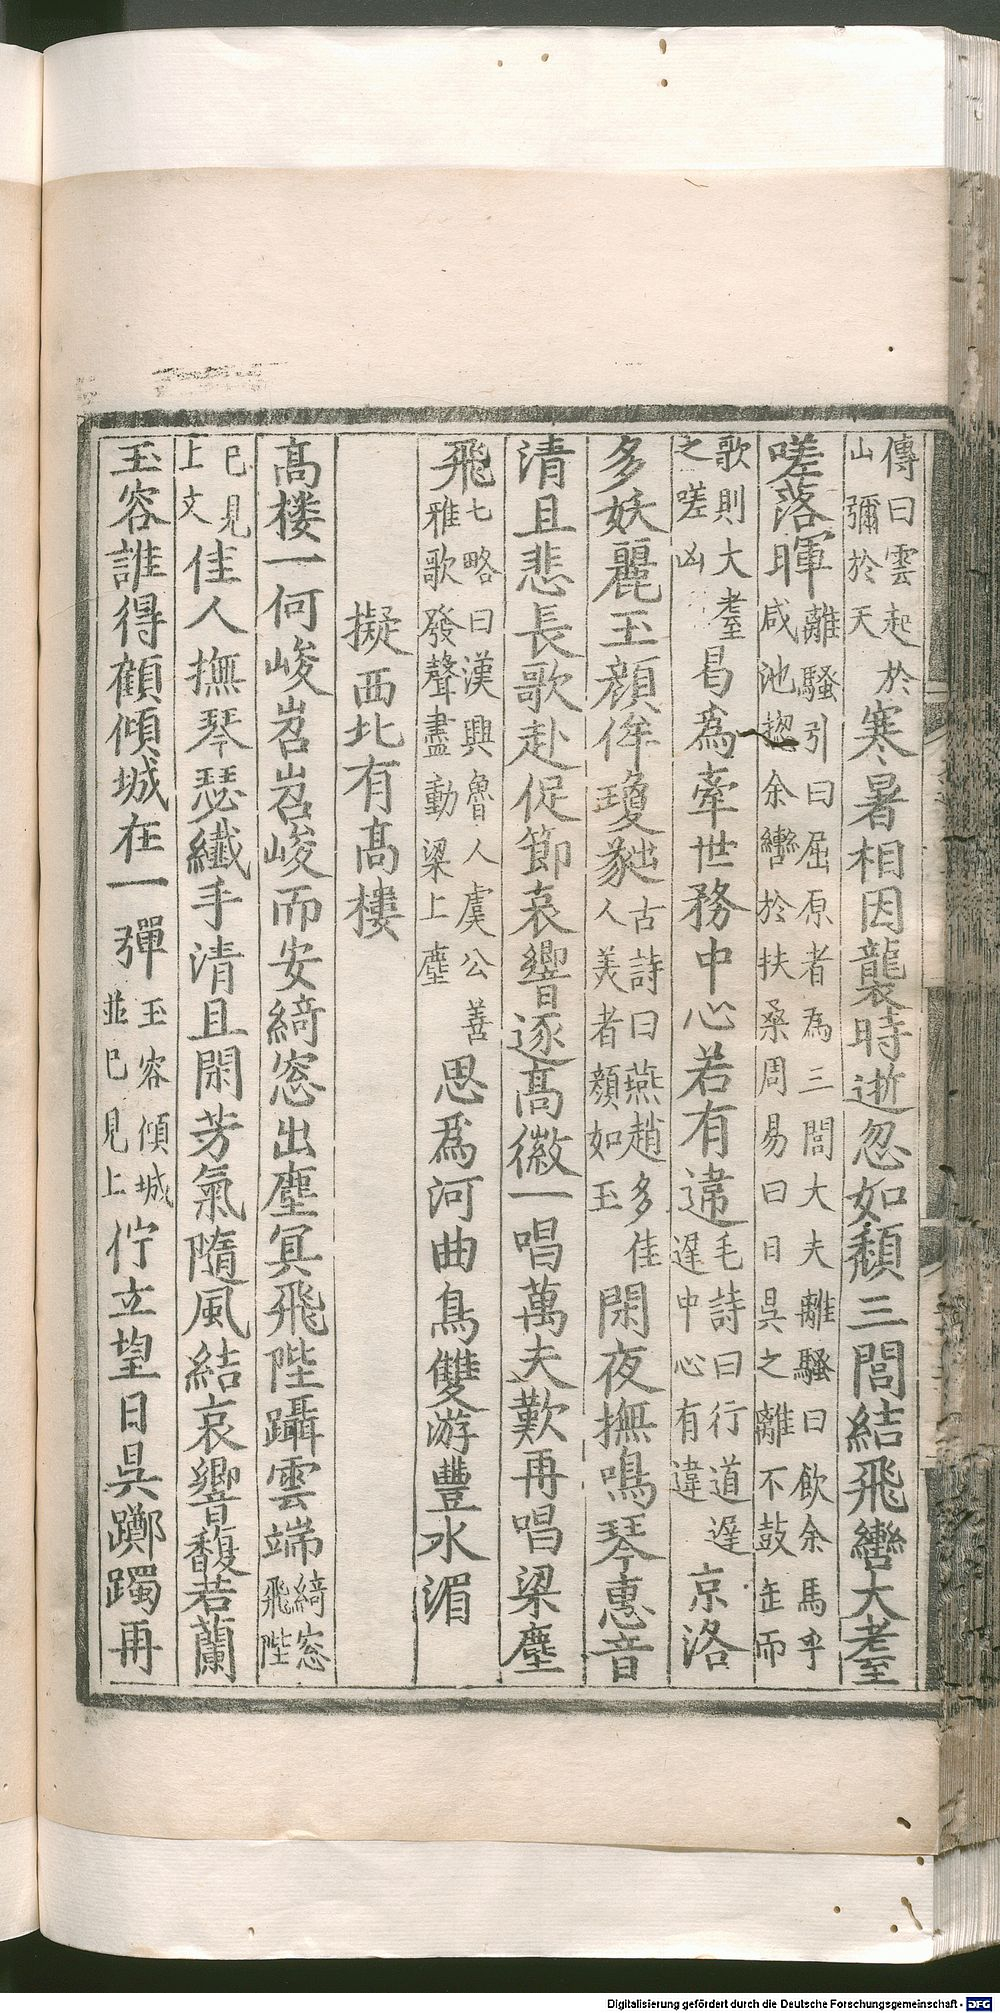 傳曰雲起於山彌於天寒暑相因襲時逝忽如頹三閭結飛轡大耋
嗟落暉離騷引曰屈原者為三閭大夫離騷曰飲余馬乎咸池揔余轡於扶桑周易曰日昃之離不鼓缶而
歌則大耋之嗟凶曷爲牽世務中心若有違毛詩曰行道遟遟中心有違京洛
多妖麗玉顔侔瓊蕤古詩曰燕趙多佳人美者顔如玉閑夜撫鳴琴惠音
清且悲長歌赴促節哀響逐高徽一唱萬夫歎再唱梁塵
飛七略曰漢興魯人虞公善雅歌發聲盡動梁上塵思爲河曲鳥雙游豐水湄
擬西北有高樓
高楼一何峻岧岧峻而安綺窓出塵冥飛陛躡雲端綺窓飛陛
已見上文佳人撫琴瑟纎手清且閑芳氣隨風結哀響馥若蘭
玉容誰得顧傾城在一彈玉容傾城並已見上佇立望日昃躑躅再
Digitalisierung gefördert durch die Deutsche Forschungsgemeinschaft - DFG